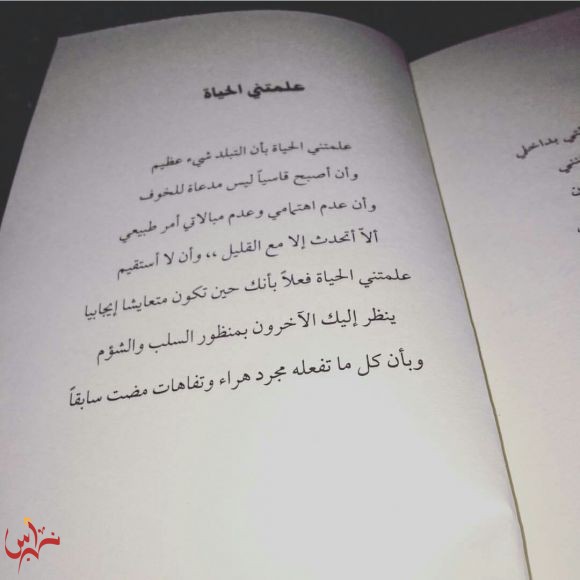 علمتني الحياة
علمتني الحياة بأن التبلد شيء عظيم
وأن أصبح قاسياً ليس مدعاة للخوف
وأن عدم اهتمامي وعدم مبالاتي أمر طبيعي
ألاّ أتحدث إلا مع القليل ،، وأن لا أستقيم
علمتني الحياة فعلاً بأنك حين تكون متعايشا إيجابيا
ينظر إليك الآخرون بمنظور السلب والشؤم
وبأن كل ما تفعله مجرد هراء وتفاهات مضت سابقاً
بداخلي